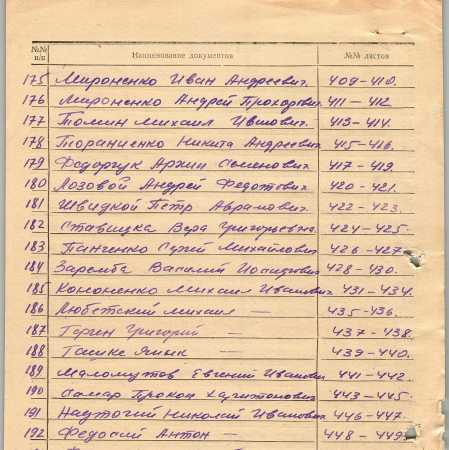 №№ п/п Наименование документов №№ листов
175 Мироненко Иван Андреевич. 409-410.
176 Мироненко Андрей Прохорович 411-412.
177 Томин Михаил Иванович. 413-414.
178 Никита Андреевич 415-416.
179 Федорчук Семенович 417-419
180 Лозовой Андрей Федотович 420-421.
181 Швидкой Петр Абрамович. 422-423.
182 Ставицка Вера Григорьевна. 424-425.
183 Панченко Михайлович 426-427
184 Заремба Василий 428-430.
185 Кононенко Михаил Иванович 431-434.
186 Любетский Михаил — 435-436.
187 Григорий — 437-438.
188 — 439-440.
189 Маломутов Евгений Иванович 441-442.
190 Самар Прокоп Харитонович 443-445.
191 Надточий Николай Иванович 446-447.
192 Федосий Антон — 448-449